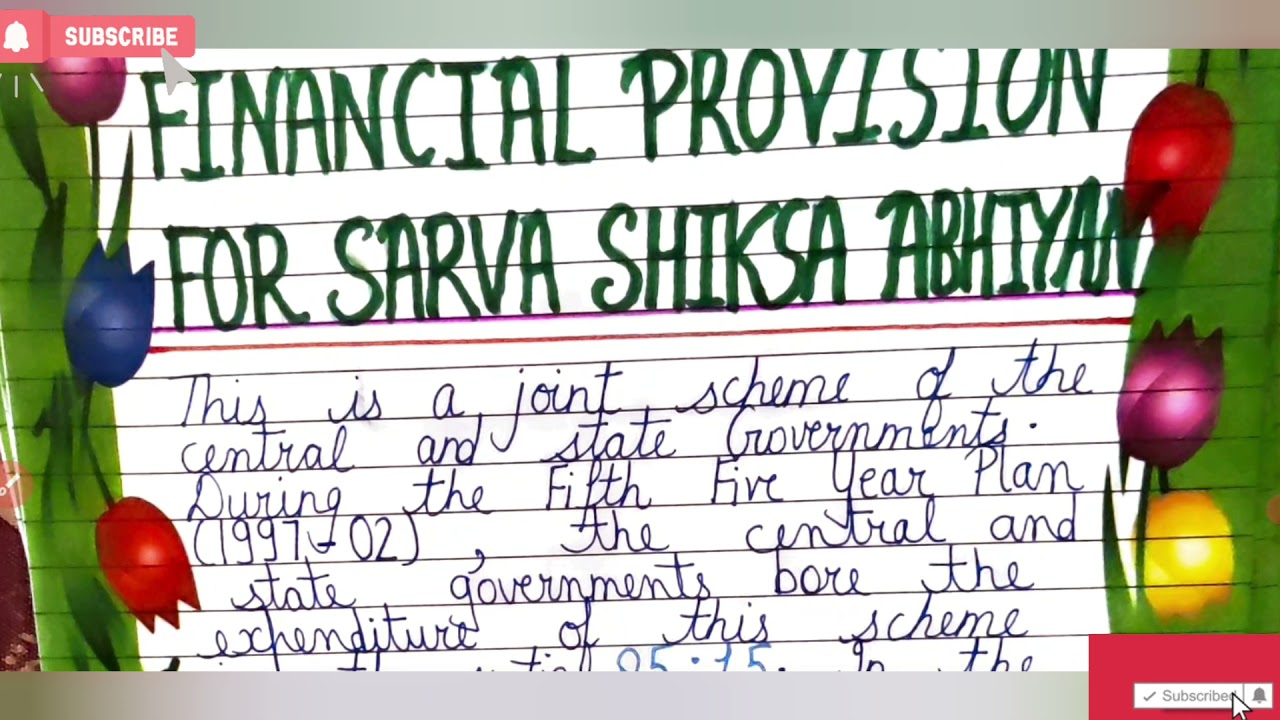 SUBSCRIBE
FINANCIAL PROVISION
FOR SARVA SHIKSA ABHIYAN
This is a joint scheme of the
central and state Governments.
During the Fifth Five Year Plan
(1997-02), the central and
state governments bore the
expenditure of this scheme
85:15. In the
Subscribed